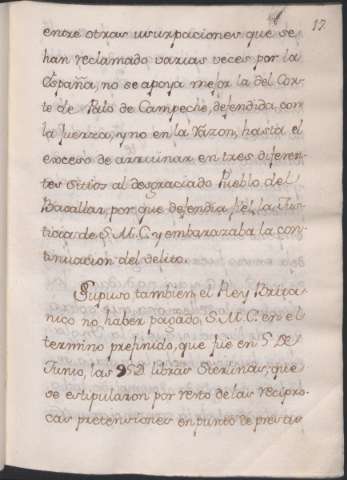 17
entre otras usurpaciones que se
han reclamado varias veces por la
España, no se apoya mejor la del Cor-
te de Palo de Campeche, defendida con
la fuerza, y no en la razon, hasta el
exceso de arruinar en tres diferen-
tes sitios al desgraciado Pueblo del
Bacallar, por que defendia fiel la Jus-
ticia de S. M. C. y embarazaba la con-
tinuacion del delito.
Supuso tambien el Rey Brita-
nico no haber pagado S. M. C. en el
termino prefinido, que fue en 5 De
Junio, las 95D libras Sterlinas, que
se estipularon por resto de las recipro-
cas pretensiones en punto de presas